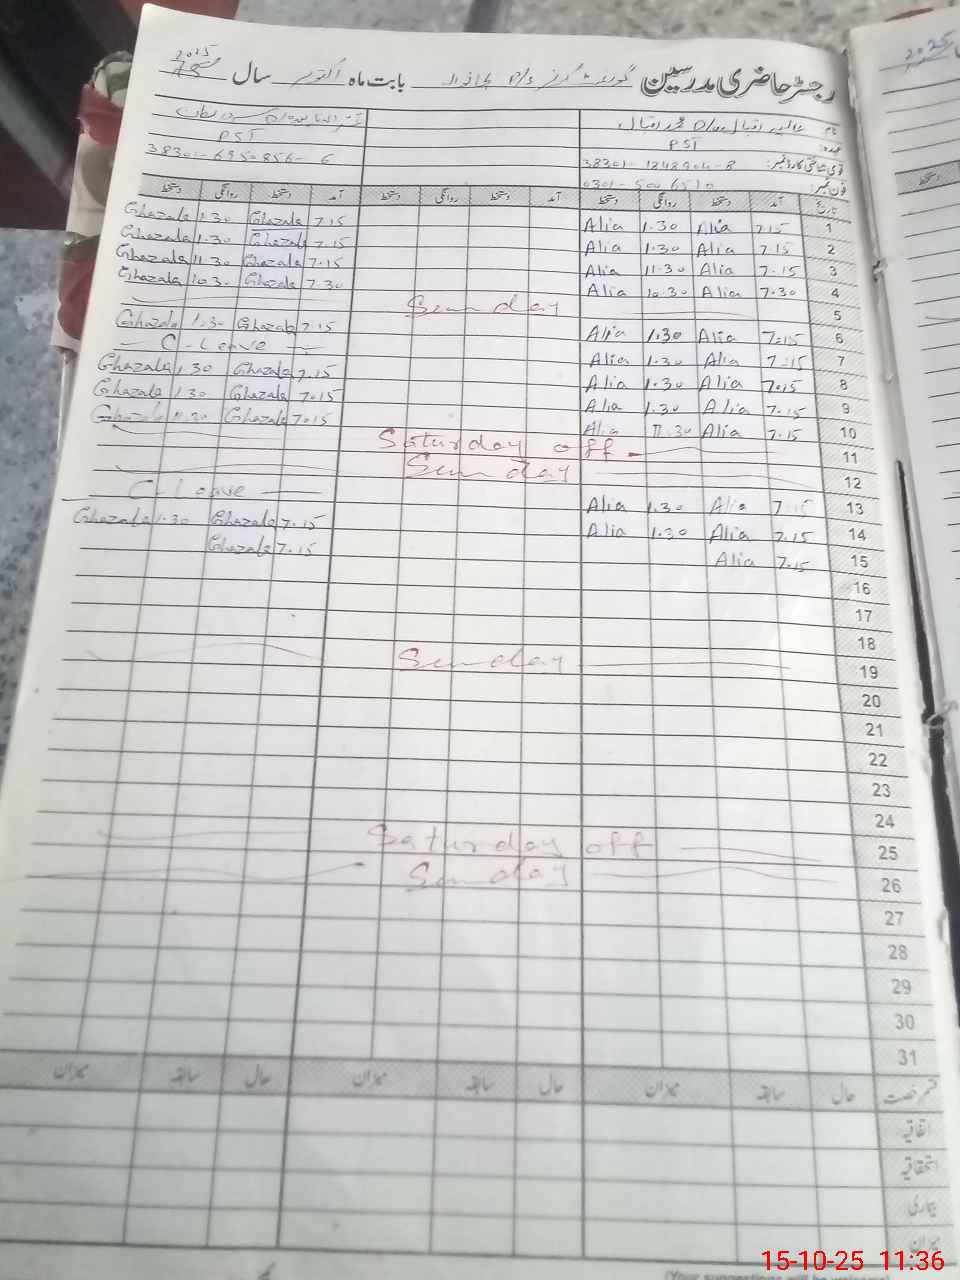 رجسٹر حاضری مدرسین گورنمنٹ گرلز بابت ماہ اکتوبر سال 2025
نام
عہدہ: PST PST
قومی شناختی کارڈ نمبر: 38301-1248904-8
فون نمبر:
تاریخ آمد دستخط روانگی دستخط آمد دستخط روانگی دستخط آمد دستخط روانگی دستخط
1 7.15 Alia 1.30 Alia 7.15 Ghazala 1.30 Ghazala
2 7.15 Alia 1.30 Alia 7.15 Ghazala 1.30 Ghazala
3 7.15 Alia 11.30 Alia 7.15 Ghazala 11.30 Ghazala
4 7.30 Alia 10.30 Alia 7.30 Ghazala 10.30 Ghazala
5 Sunday
6 7:15 Alia 1.30 Alia 7.15 Ghazala 1.30 Ghazala
7 7:15 Alia 1.30 Alia C-Leave
8 7.15 Alia 1.30 Alia 7.15 Ghazala 1.30 Ghazala
9 7.15 Alia 1.30 Alia 7.15 Ghazala 1.30 Ghazala
10 7.15 Alia 11.30 Alia 7.15 Ghazala 11.30 Ghazala
11 Saturday off
12 Sunday
13 7.15 Alia 1.30 Alia C-Leave
14 7.15 Alia 1.30 Alia 7.15 Ghazala 1.30 Ghazala
15 7.15 Alia 7.15 Ghazala
16
17
18
19 Sunday
20
21
22
23
24
25 Saturday off
26 Sunday
27
28
29
30
31
قسم رخصت حال سابقہ میزان حال سابقہ میزان حال سابقہ میزان
اتفاقیہ
استحقاقیہ
بیماری
میزان
15-10-25 11:36